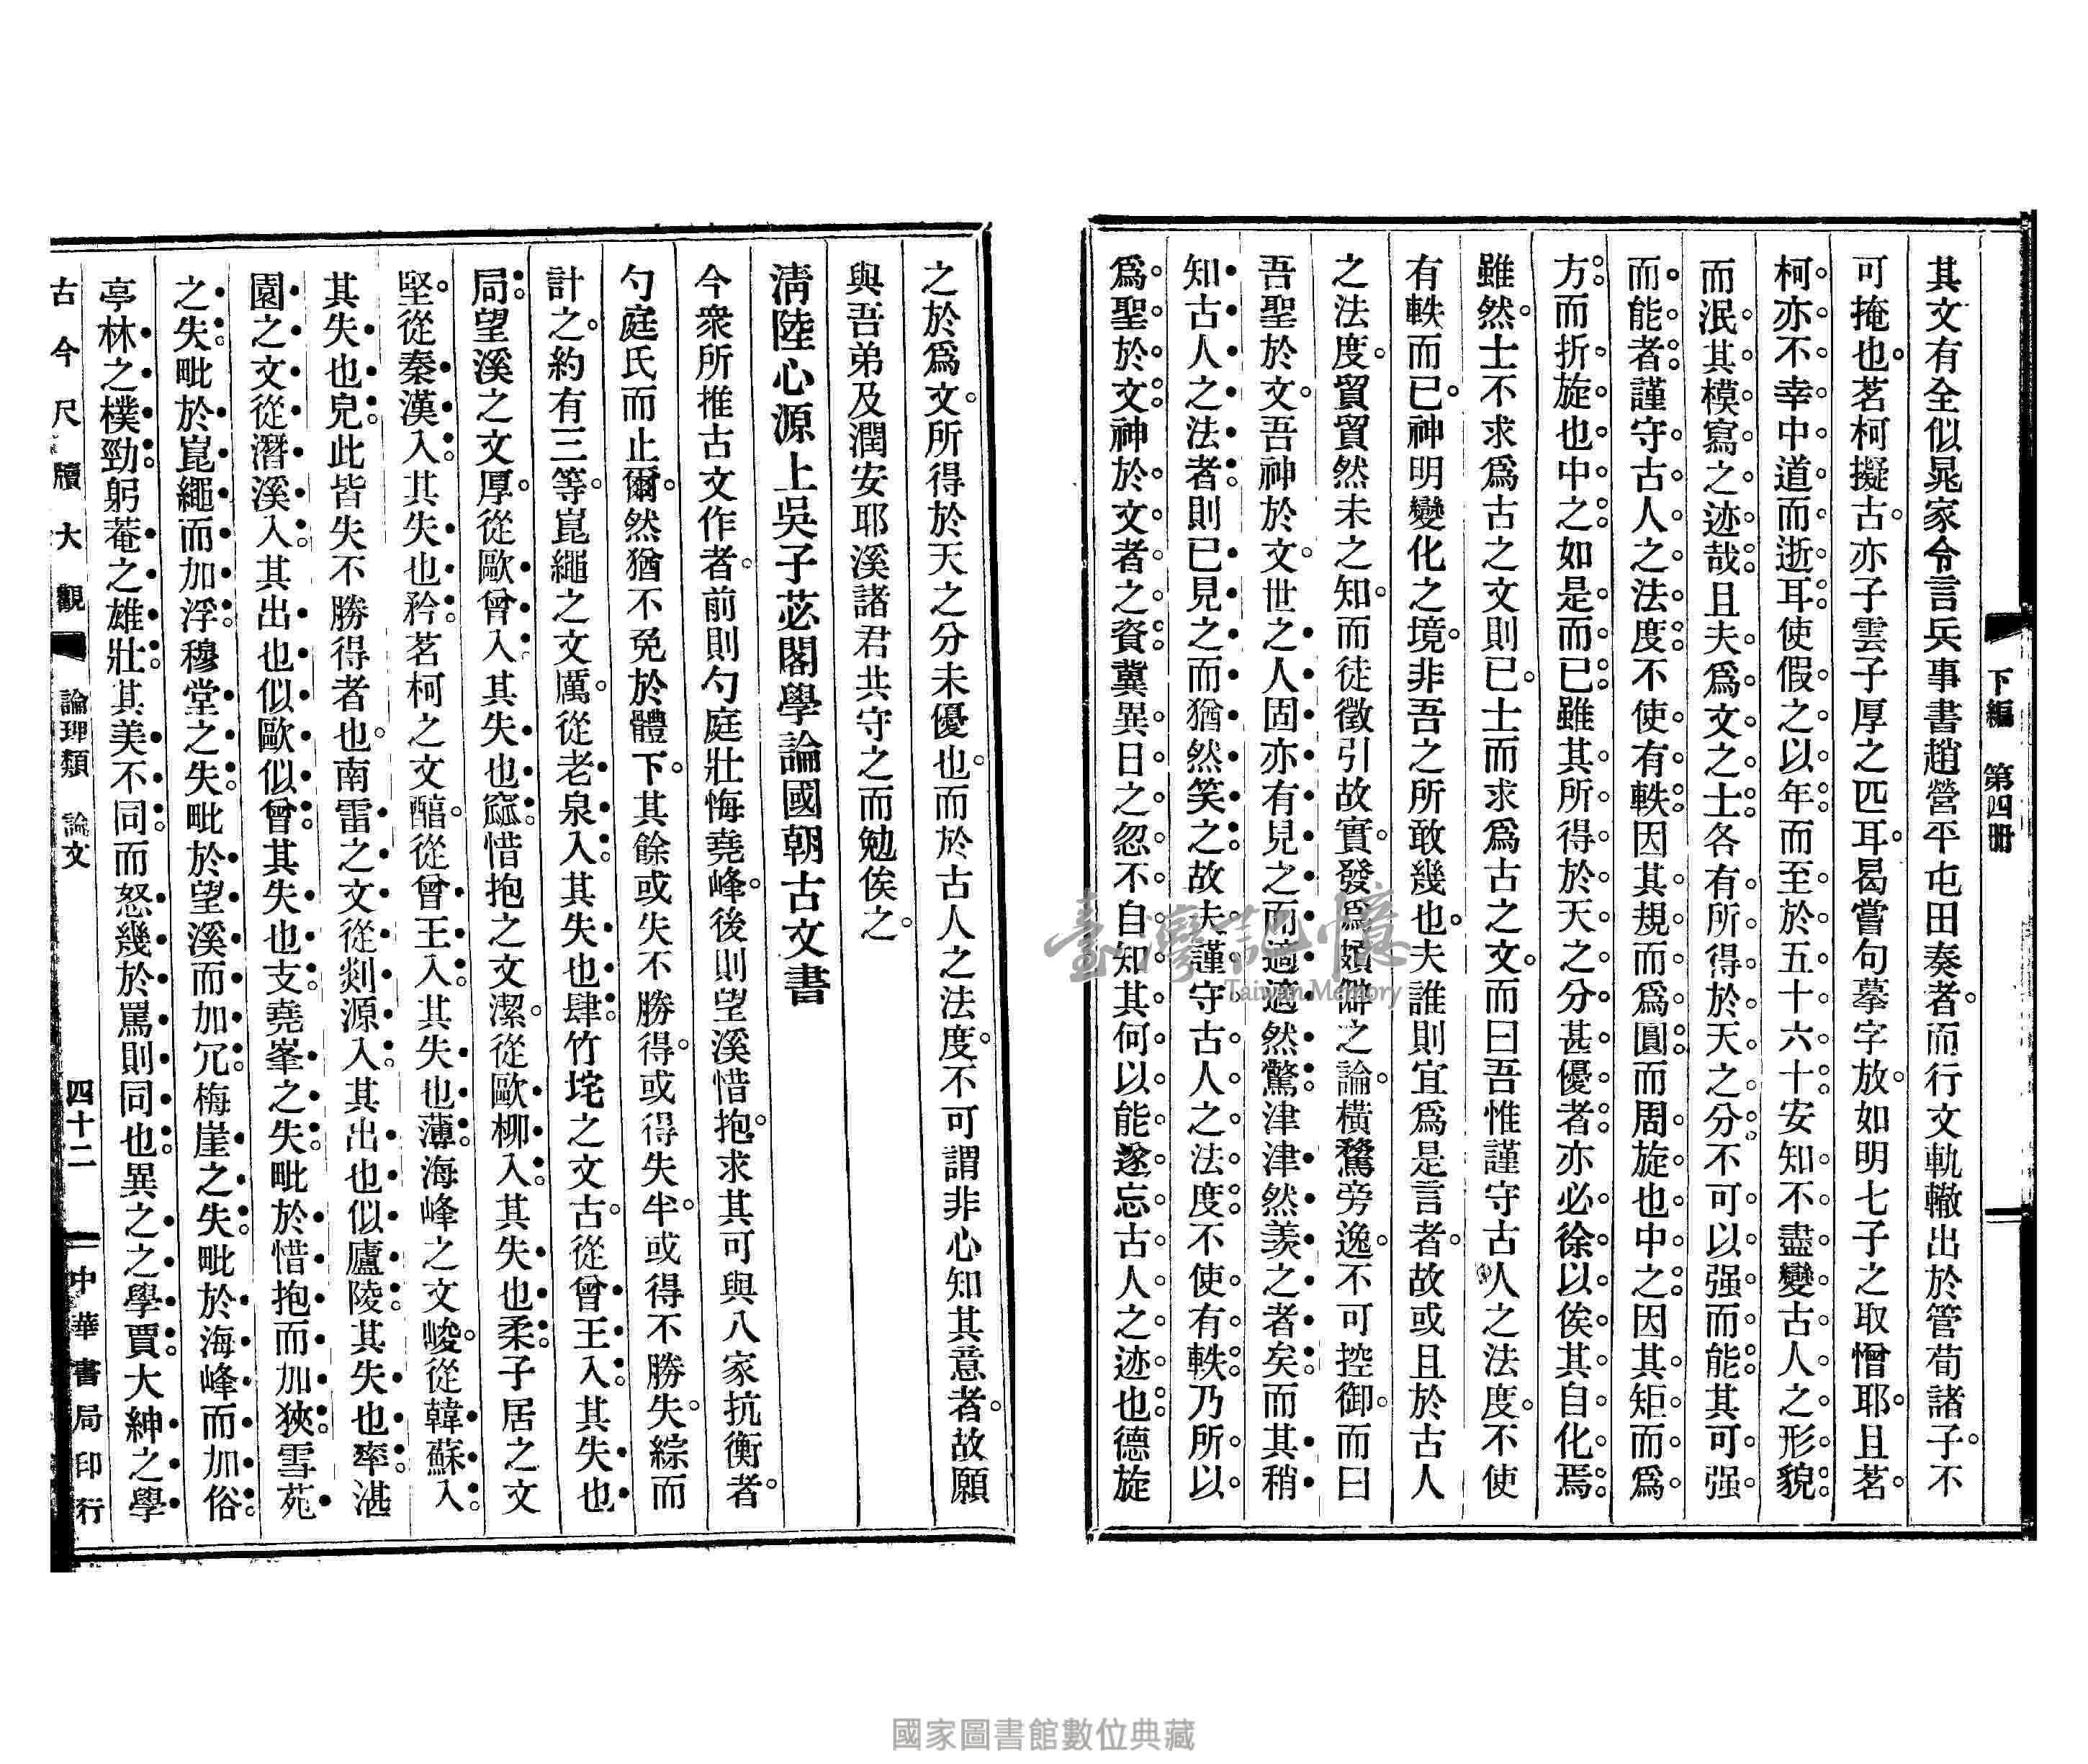 下編　第四冊
其文有全似晁家令言兵事書趙營平屯田奏者。而行文軌轍出於管荀諸子。不
可掩也。茗柯擬古。亦子雲子厚之匹耳。曷嘗句摹字放。如明七子之取憎耶。且茗
柯亦不幸中道而逝耳。使假之以年。而至於五十六十。安知不盡變古人之形貌。
而泯其模寫之迹哉。且夫爲文之士。各有所得於天之分。不可以强而能。其可强
而能者。謹守古人之法度。不使有軼。因其規而爲圓。而周旋也中之。因其矩而爲
方。而折旋也中之。如是而已。雖其所得於天之分甚優者。亦必徐以俟其自化焉。
雖然。士不求爲古之文則已。士而求爲古之文。而曰吾惟謹守古人之法度。不使
有軼而已。神明變化之境。非吾之所敢幾也。夫誰則宜爲是言者。故或且於古人
之法度。貿貿然未之知。而徒徵引故實。發爲頗僻之論。橫騖旁逸。不可控御。而曰
吾聖於文。吾神於文。世之人固亦有見之而適適然驚。津津然羨之者矣。而其稍
知古人之法者。則已見之而猶然笑之。故夫謹守古人之法度。不使有軼。乃所以
爲聖於文。神於文者之資。冀異日之忽不自知其何以能遂忘古人之迹也。德旋
之於爲文。所得於天之分未優也。而於古人之法度。不可謂非心知其意者。故願
與吾弟及潤安耶溪諸君共守之而勉俟之。
清陸心源上吳子苾閣學論國朝古文書
今衆所推古文作者。前則勺庭壯悔堯峰。後則望溪惜抱。求其可與八家抗衡者。
勺庭氏而止爾。然猶不免於體下。其餘或失不勝得。或得失半。或得不勝失。綜而
計之。約有三等。崑繩之文厲。從老泉入。其失也肆。竹垞之文古。從曾王入。其失也
局。望溪之文厚。從歐曾入。其失也窳。惜抱之文潔。從歐柳入。其失也柔。子居之文
堅。從秦漢入。其失也矜。茗柯之文醖。從曾王入。其失也薄。海峰之文峻。從韓蘇入。
其失也皃。此皆失不勝得者也。南雷之文。從剡源入。其出也似廬陵。其失也率。湛
園之文。從潛溪入。其出也似歐似曾。其失也支。堯峯之失。毗於惜抱而加狹。雪苑
之失。毗於崑繩而加浮。穆堂之失。毗於望溪而加冗。梅崖之失。毗於海峰而加俗。
亭林之樸勁。躬菴之雄壯。其美不同。而怒幾於罵則同也。異之之學賈。大紳之學
古今尺牘大觀　論理類　論文　四十二　中華書局印行
臺灣記憶
Taiwan Memory
國家圖書館數位典藏